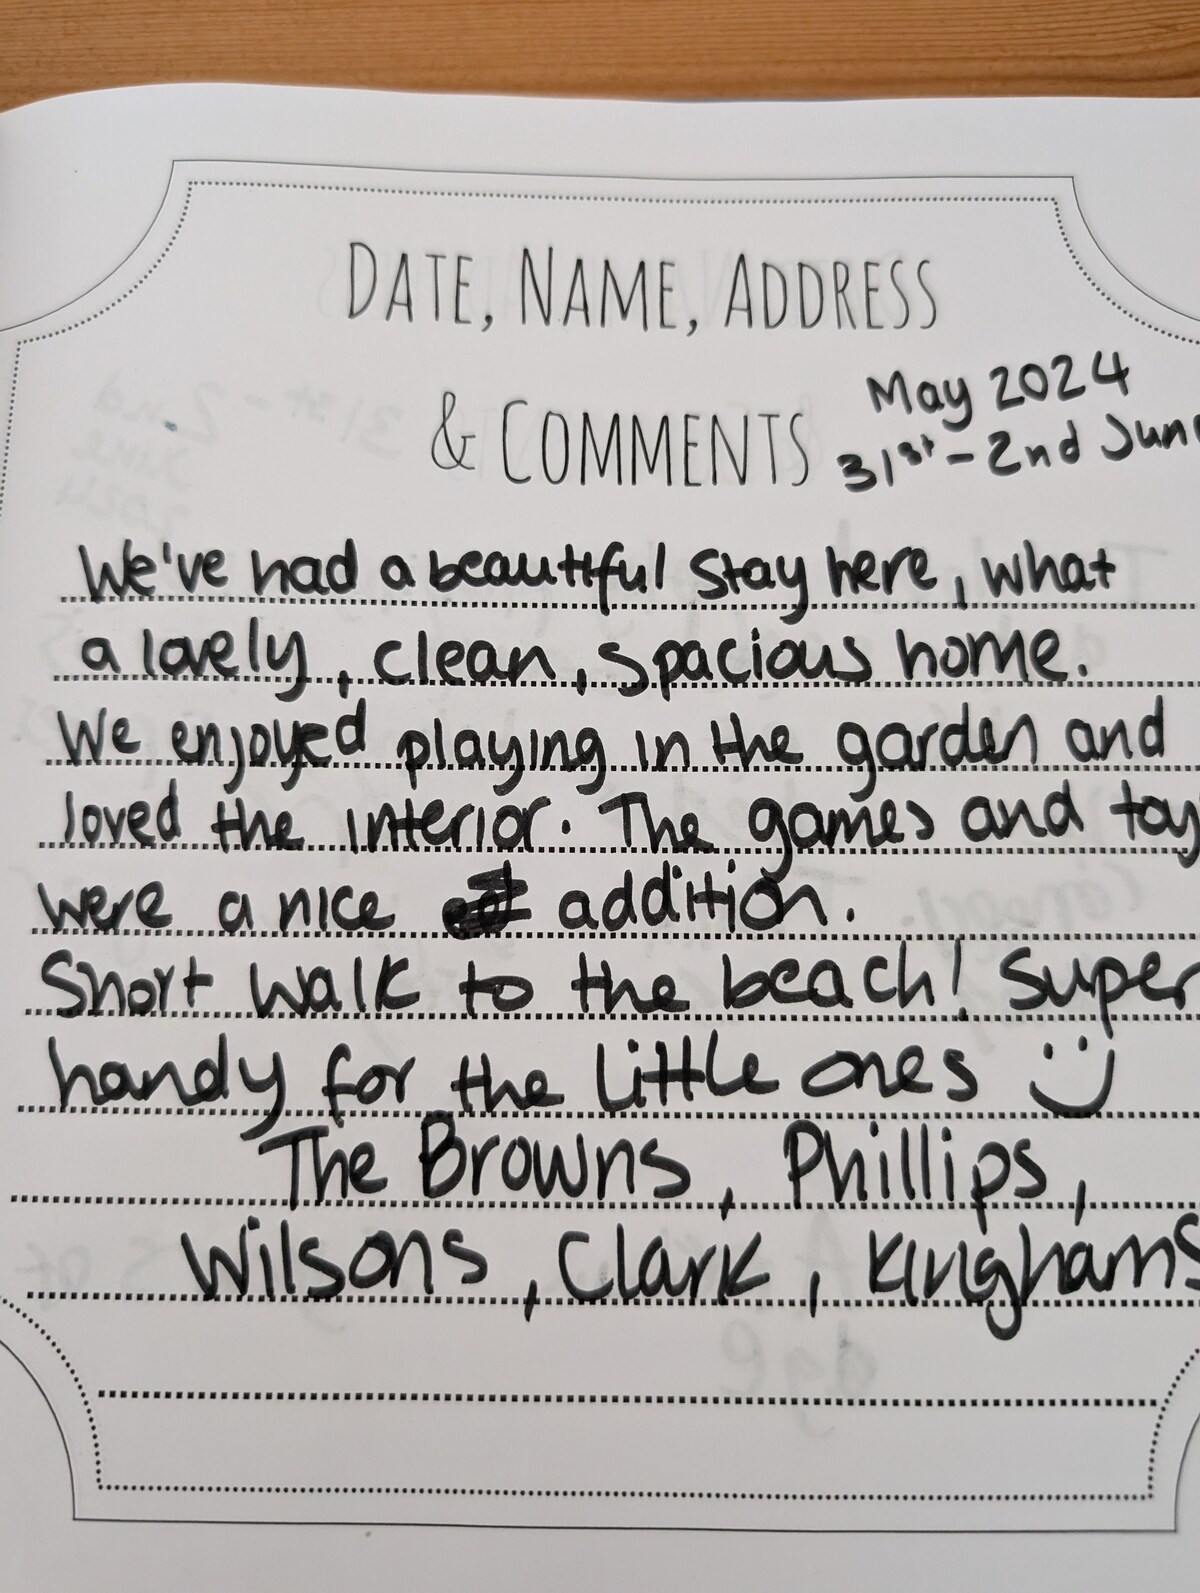 DATE, NAME, ADDRESS
& COMMENTS
May 2024
31st - 2nd June
We've had a beautiful stay here, what
a lovely, clean, spacious home.
We enjoyed playing in the garden and
loved the interior. The games and toy
were a nice addition.
Short walk to the beach! Super
handy for the little ones :)
The Browns, Phillips,
Wilsons, Clark, Kinghams